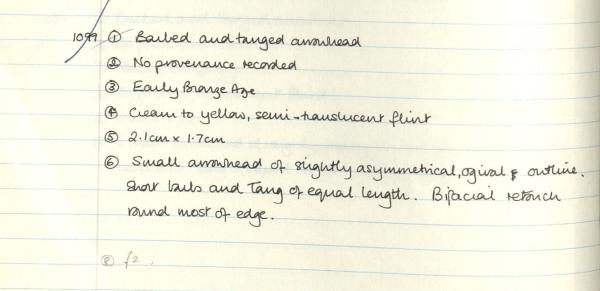 1099 ① Barbed and tanged arrowhead
② No provenance recorded
③ Early Bronze Age
④ Cream to yellow, semi-translucent flint
⑤ 2.1cm x 1.7cm
⑥ Small arrowhead of slightly asymmetrical, ogival outline.
Short barbs and Tang of equal length. Bifacial retouch
round most of edge.
⑧ f2.